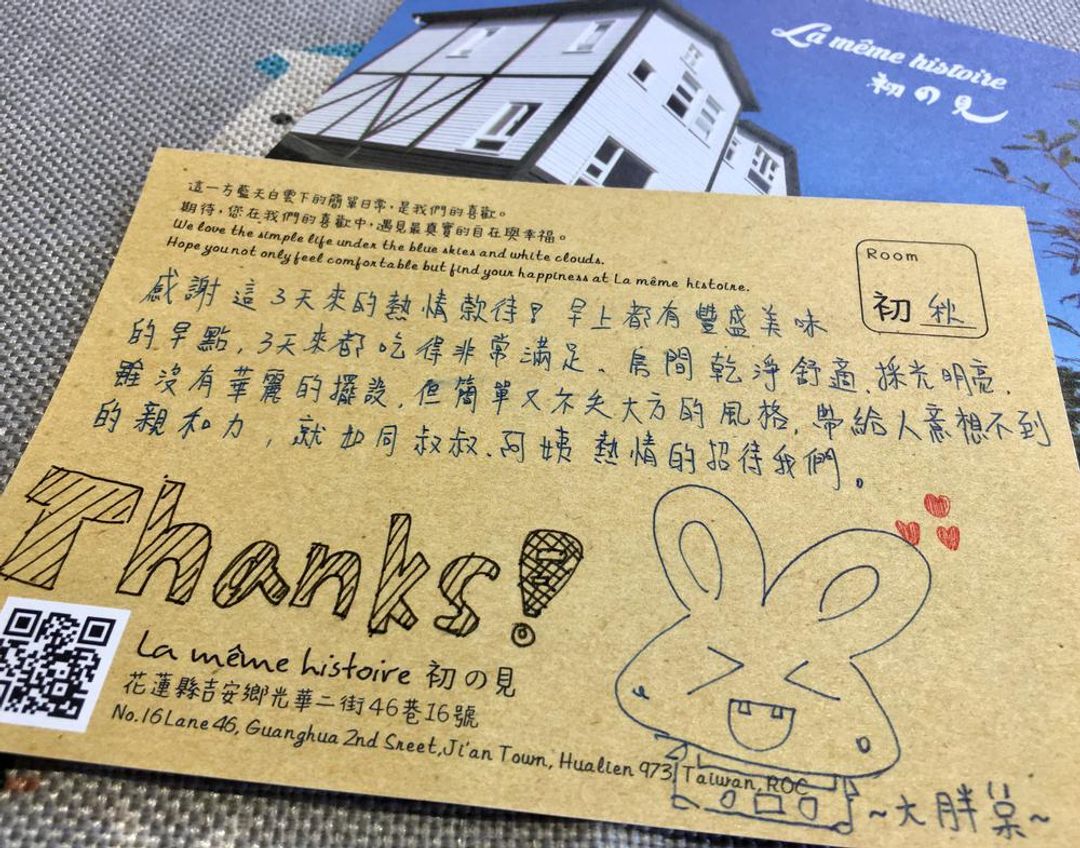 La même histoire
初の見
這一方藍天白雲下的簡單日常，是我們的喜歡。
期待，您在我們的喜歡中，遇見最真實的自在與幸福。
We love the simple life under the blue skies and white clouds.
Hope you not only feel comfortable but find your happiness at La même histoire.
Room
初 秋
感謝這3天來的熱情款待！早上都有豐盛美味
的早點，3天來都吃得非常滿足、房間乾淨舒適、採光明亮，
雖沒有華麗的擺設，但簡單又不失大方的風格，帶給人意想不到
的親和力，就如同叔叔、阿姨熱情的招待我們。
Thanks!
La même histoire 初の見
花蓮縣吉安鄉光華二街46巷16號
No.16 Lane 46, Guanghua 2nd Sreet, Ji'an Town, Hualien 973, Taiwan, ROC
~大胖~